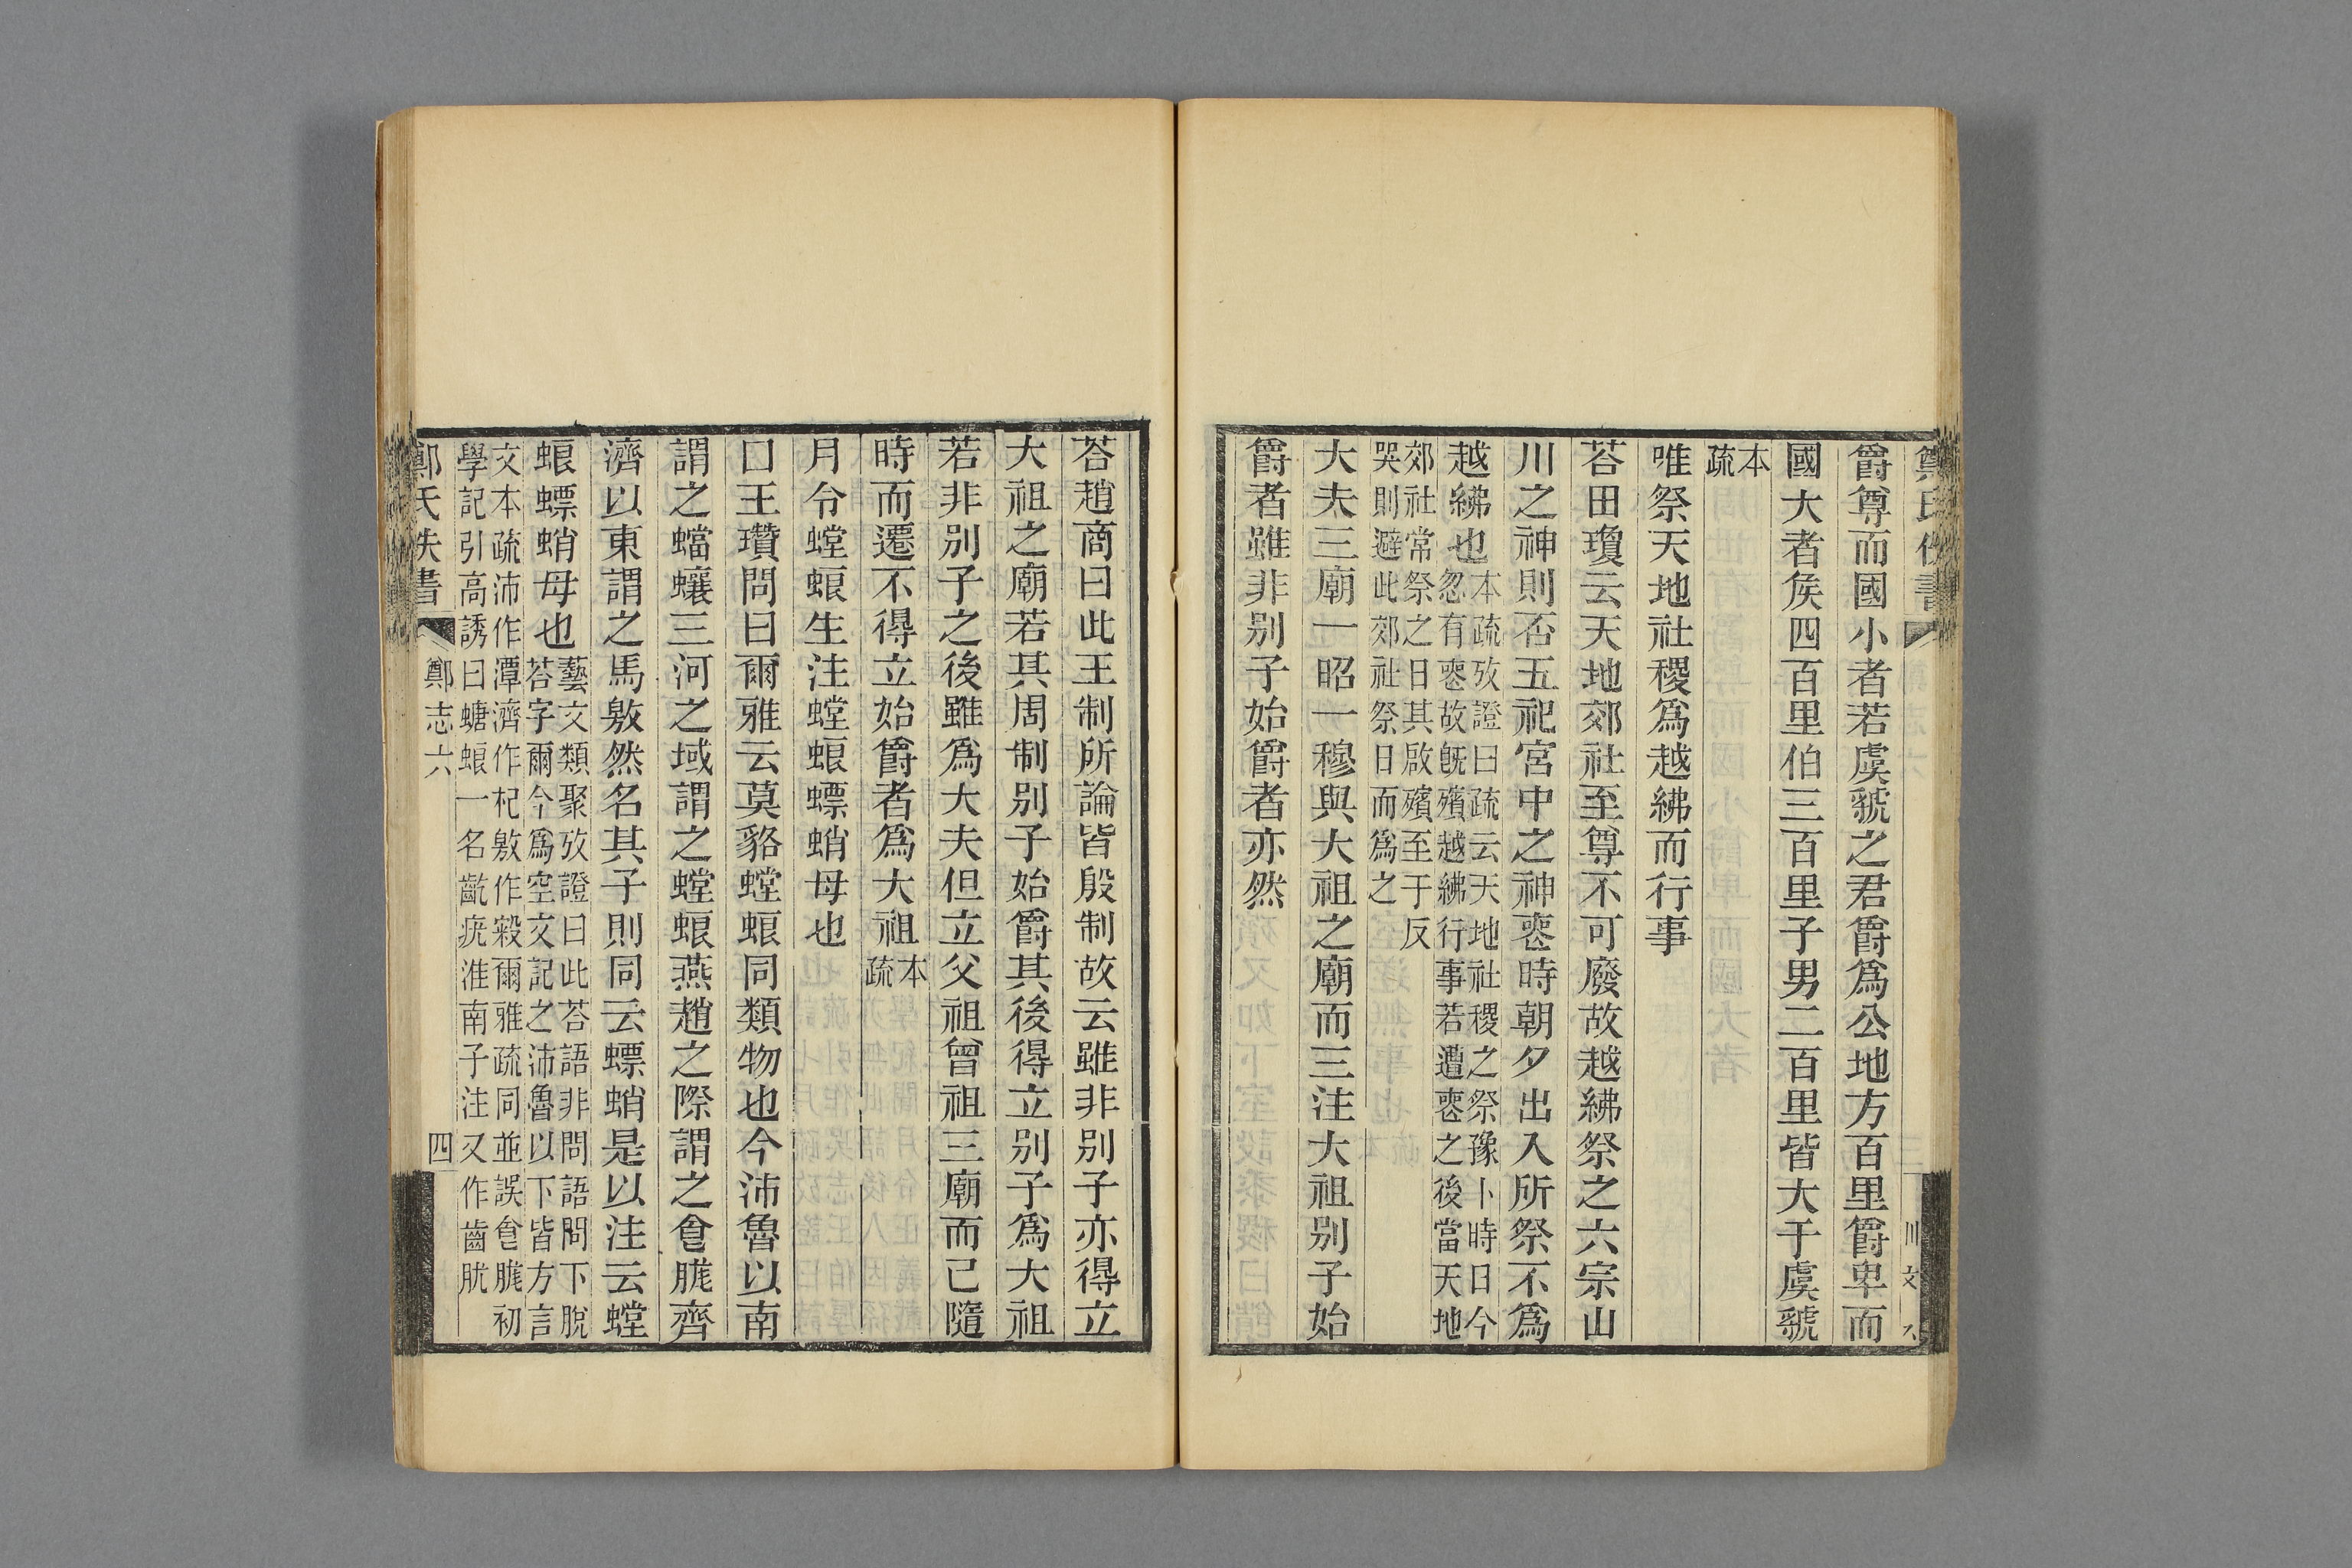 鄭氏佚書
爵尊而國小者若虞虢之君爵爲公地方百里爵卑而
國大者矦四百里伯三百里子男二百里皆大于虞虢
本
疏
唯祭天地社稷爲越紼而行事
荅田瓊云天地郊社至尊不可廢故越紼祭之六宗山
川之神則否五祀宮中之神喪時朝夕出入所祭不爲
越紼也
本疏攷證曰疏云天地社稷之祭豫卜時日今
忽有喪故旣殯越紼行事若遭喪之後當天地
郊社常祭之日其啟殯至于反
哭則避此郊社祭日而爲之
大夫三廟一昭一穆與大祖之廟而三注大祖别子始
爵者雖非别子始爵者亦然
荅趙商曰此王制所論皆殷制故云雖非别子亦得立
大祖之廟若其周制别子始爵其後得立别子爲大祖
若非别子之後雖爲大夫但立父祖曾祖三廟而已隨
時而遷不得立始爵者爲大祖
本
疏
月令螳蜋生注螳蜋螵蛸母也
囗王瓚問曰爾雅云莫貉螳蜋同類物也今沛魯以南
謂之蟷蠰三河之域謂之螳蜋燕趙之際謂之食肬齊
濟以東謂之馬敫然名其子則同云螵蛸是以注云螳
蜋螵蛸母也
藝文類聚攷證曰此荅語非問語問下脫
荅字爾今爲空文記之沛魯以下皆方言
文本疏沛作潭濟作杞敫作穀爾雅疏同並誤食肬初
學記引高誘曰螗蜋一名齕疣淮南子注又作齒肬
鄭氏佚書
鄭志六
四